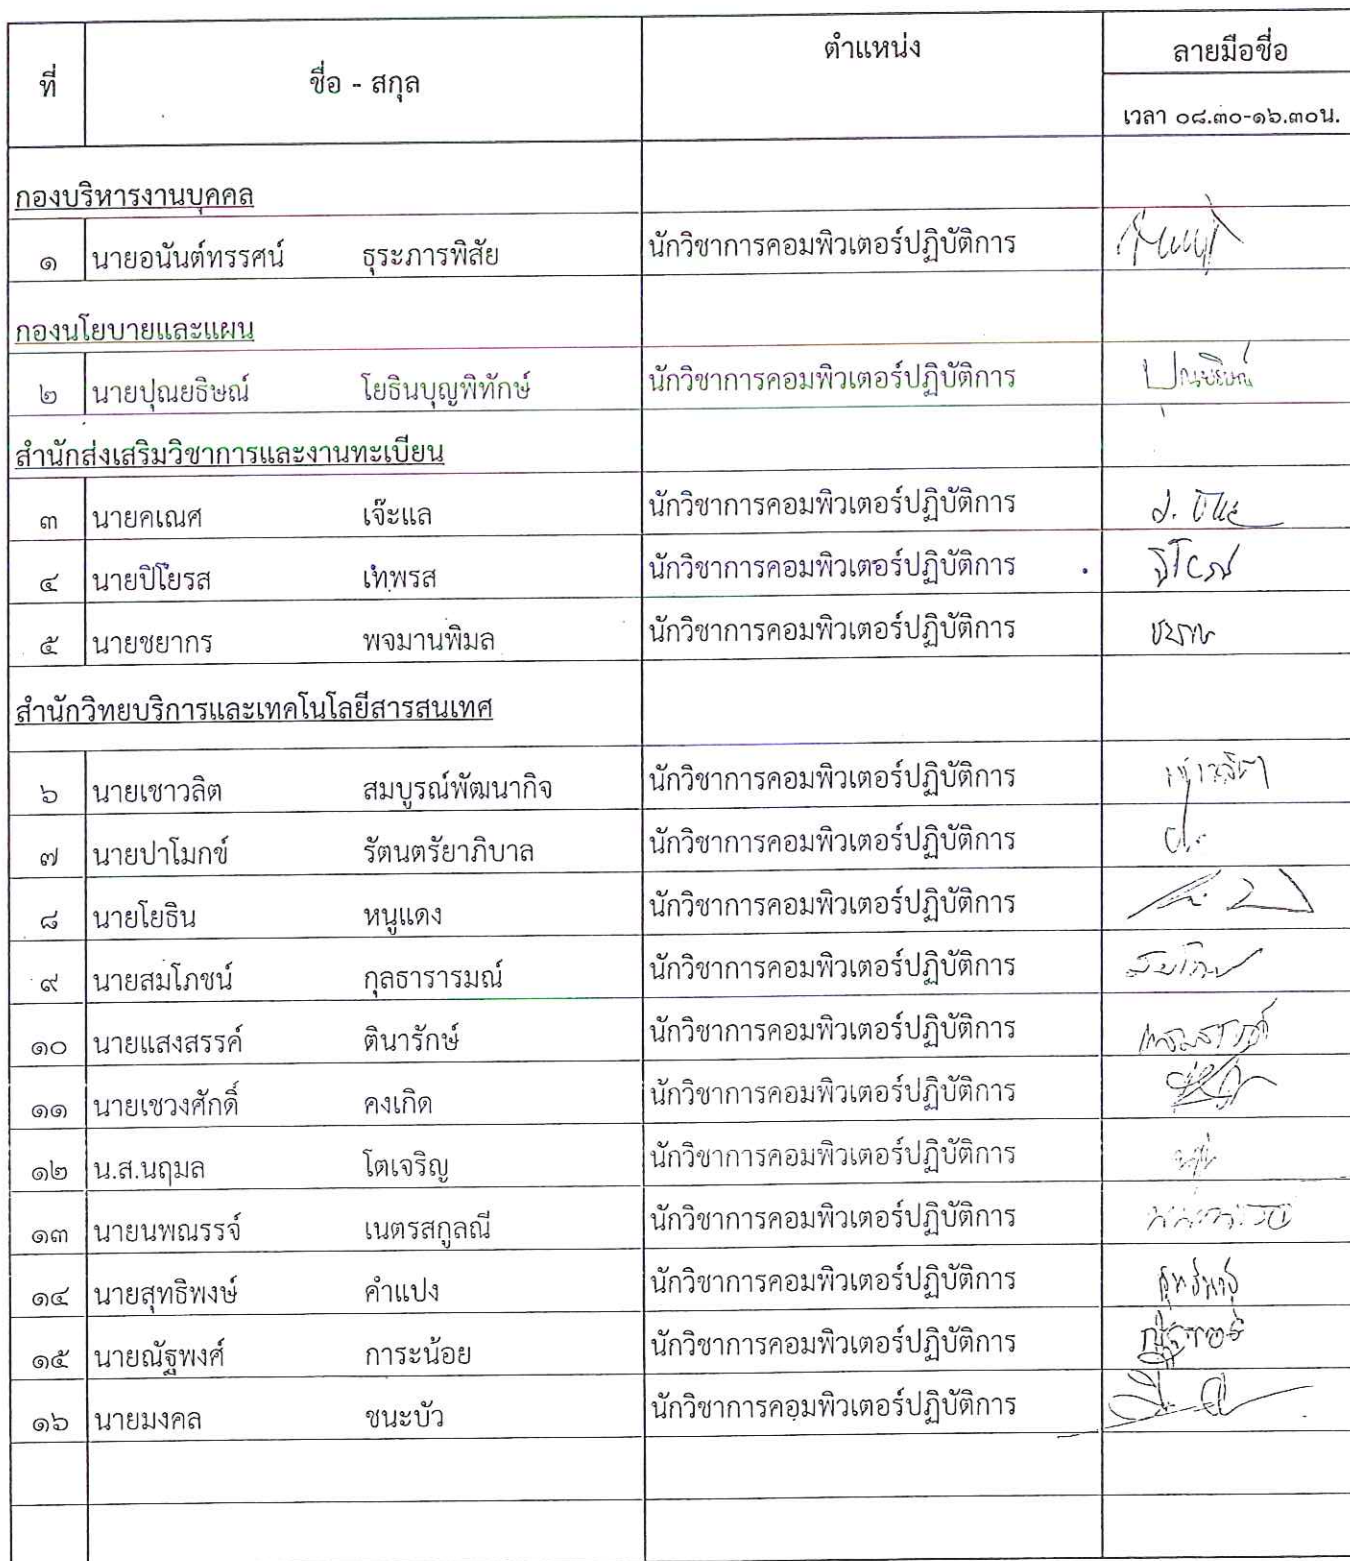 ที่ ชื่อ - สกุล ตำแหน่ง ลายมือชื่อ
เวลา ๐๘.๓๐-๑๖.๓๐น.
กองบริหารงานบุคคล
๑ นายอนันต์ทรรศน์ ธุระภารพิสัย นักวิชาการคอมพิวเตอร์ปฏิบัติการ
กองนโยบายและแผน
๒ นายปุณยธิษณ์ โยธินบุญพิทักษ์ นักวิชาการคอมพิวเตอร์ปฏิบัติการ ปุณยธิษณ์
สำนักส่งเสริมวิชาการและงานทะเบียน
๓ นายคเณศ เจ๊ะแล นักวิชาการคอมพิวเตอร์ปฏิบัติการ
๔ นายปิโยรส เทพรส นักวิชาการคอมพิวเตอร์ปฏิบัติการ
๕ นายชยากร พจมานพิมล นักวิชาการคอมพิวเตอร์ปฏิบัติการ
สำนักวิทยบริการและเทคโนโลยีสารสนเทศ
๖ นายเชาวลิต สมบูรณ์พัฒนากิจ นักวิชาการคอมพิวเตอร์ปฏิบัติการ เชาวลิต
๗ นายปาโมกข์ รัตนตรัยาภิบาล นักวิชาการคอมพิวเตอร์ปฏิบัติการ
๘ นายโยธิน หนูแดง นักวิชาการคอมพิวเตอร์ปฏิบัติการ
๙ นายสมโภชน์ กุลธารารมณ์ นักวิชาการคอมพิวเตอร์ปฏิบัติการ
๑๐ นายแสงสรรค์ ตินารักษ์ นักวิชาการคอมพิวเตอร์ปฏิบัติการ
๑๑ นายเชวงศักดิ์ คงเกิด นักวิชาการคอมพิวเตอร์ปฏิบัติการ
๑๒ น.ส.นฤมล โตเจริญ นักวิชาการคอมพิวเตอร์ปฏิบัติการ
๑๓ นายนพณรรจ์ เนตรสกูลณี นักวิชาการคอมพิวเตอร์ปฏิบัติการ
๑๔ นายสุทธิพงษ์ คำแปง นักวิชาการคอมพิวเตอร์ปฏิบัติการ
๑๕ นายณัฐพงศ์ การะน้อย นักวิชาการคอมพิวเตอร์ปฏิบัติการ
๑๖ นายมงคล ชนะบัว นักวิชาการคอมพิวเตอร์ปฏิบัติการ